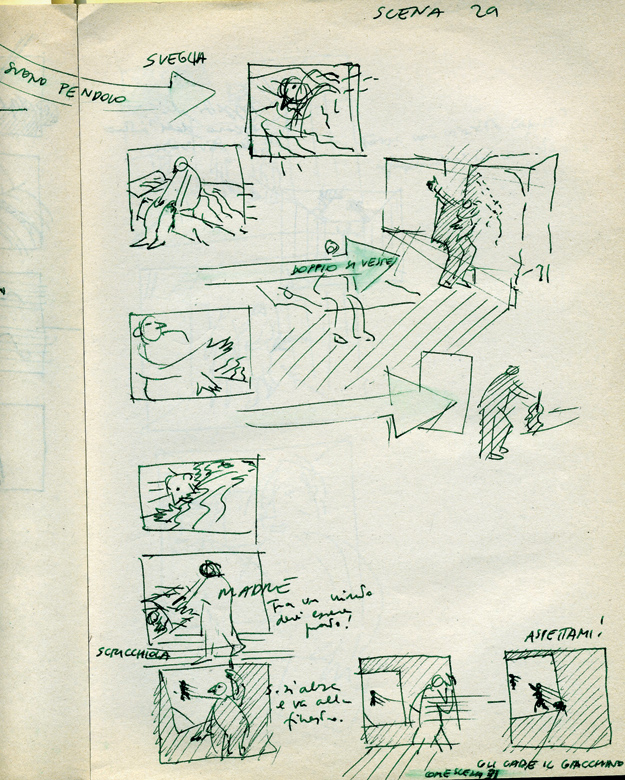 SCENA 29
SVEGLIA
SUONO PENDOLO
DOPPIO SI VESTE
31
MADRE
Tra un minuto
devi essere
pronto!
SCRICCHIOLA
S. si alza
e va alla
finestra.
ASPETTAMI!
GLI CADE IL GIACCHINO
COME SCENA 31